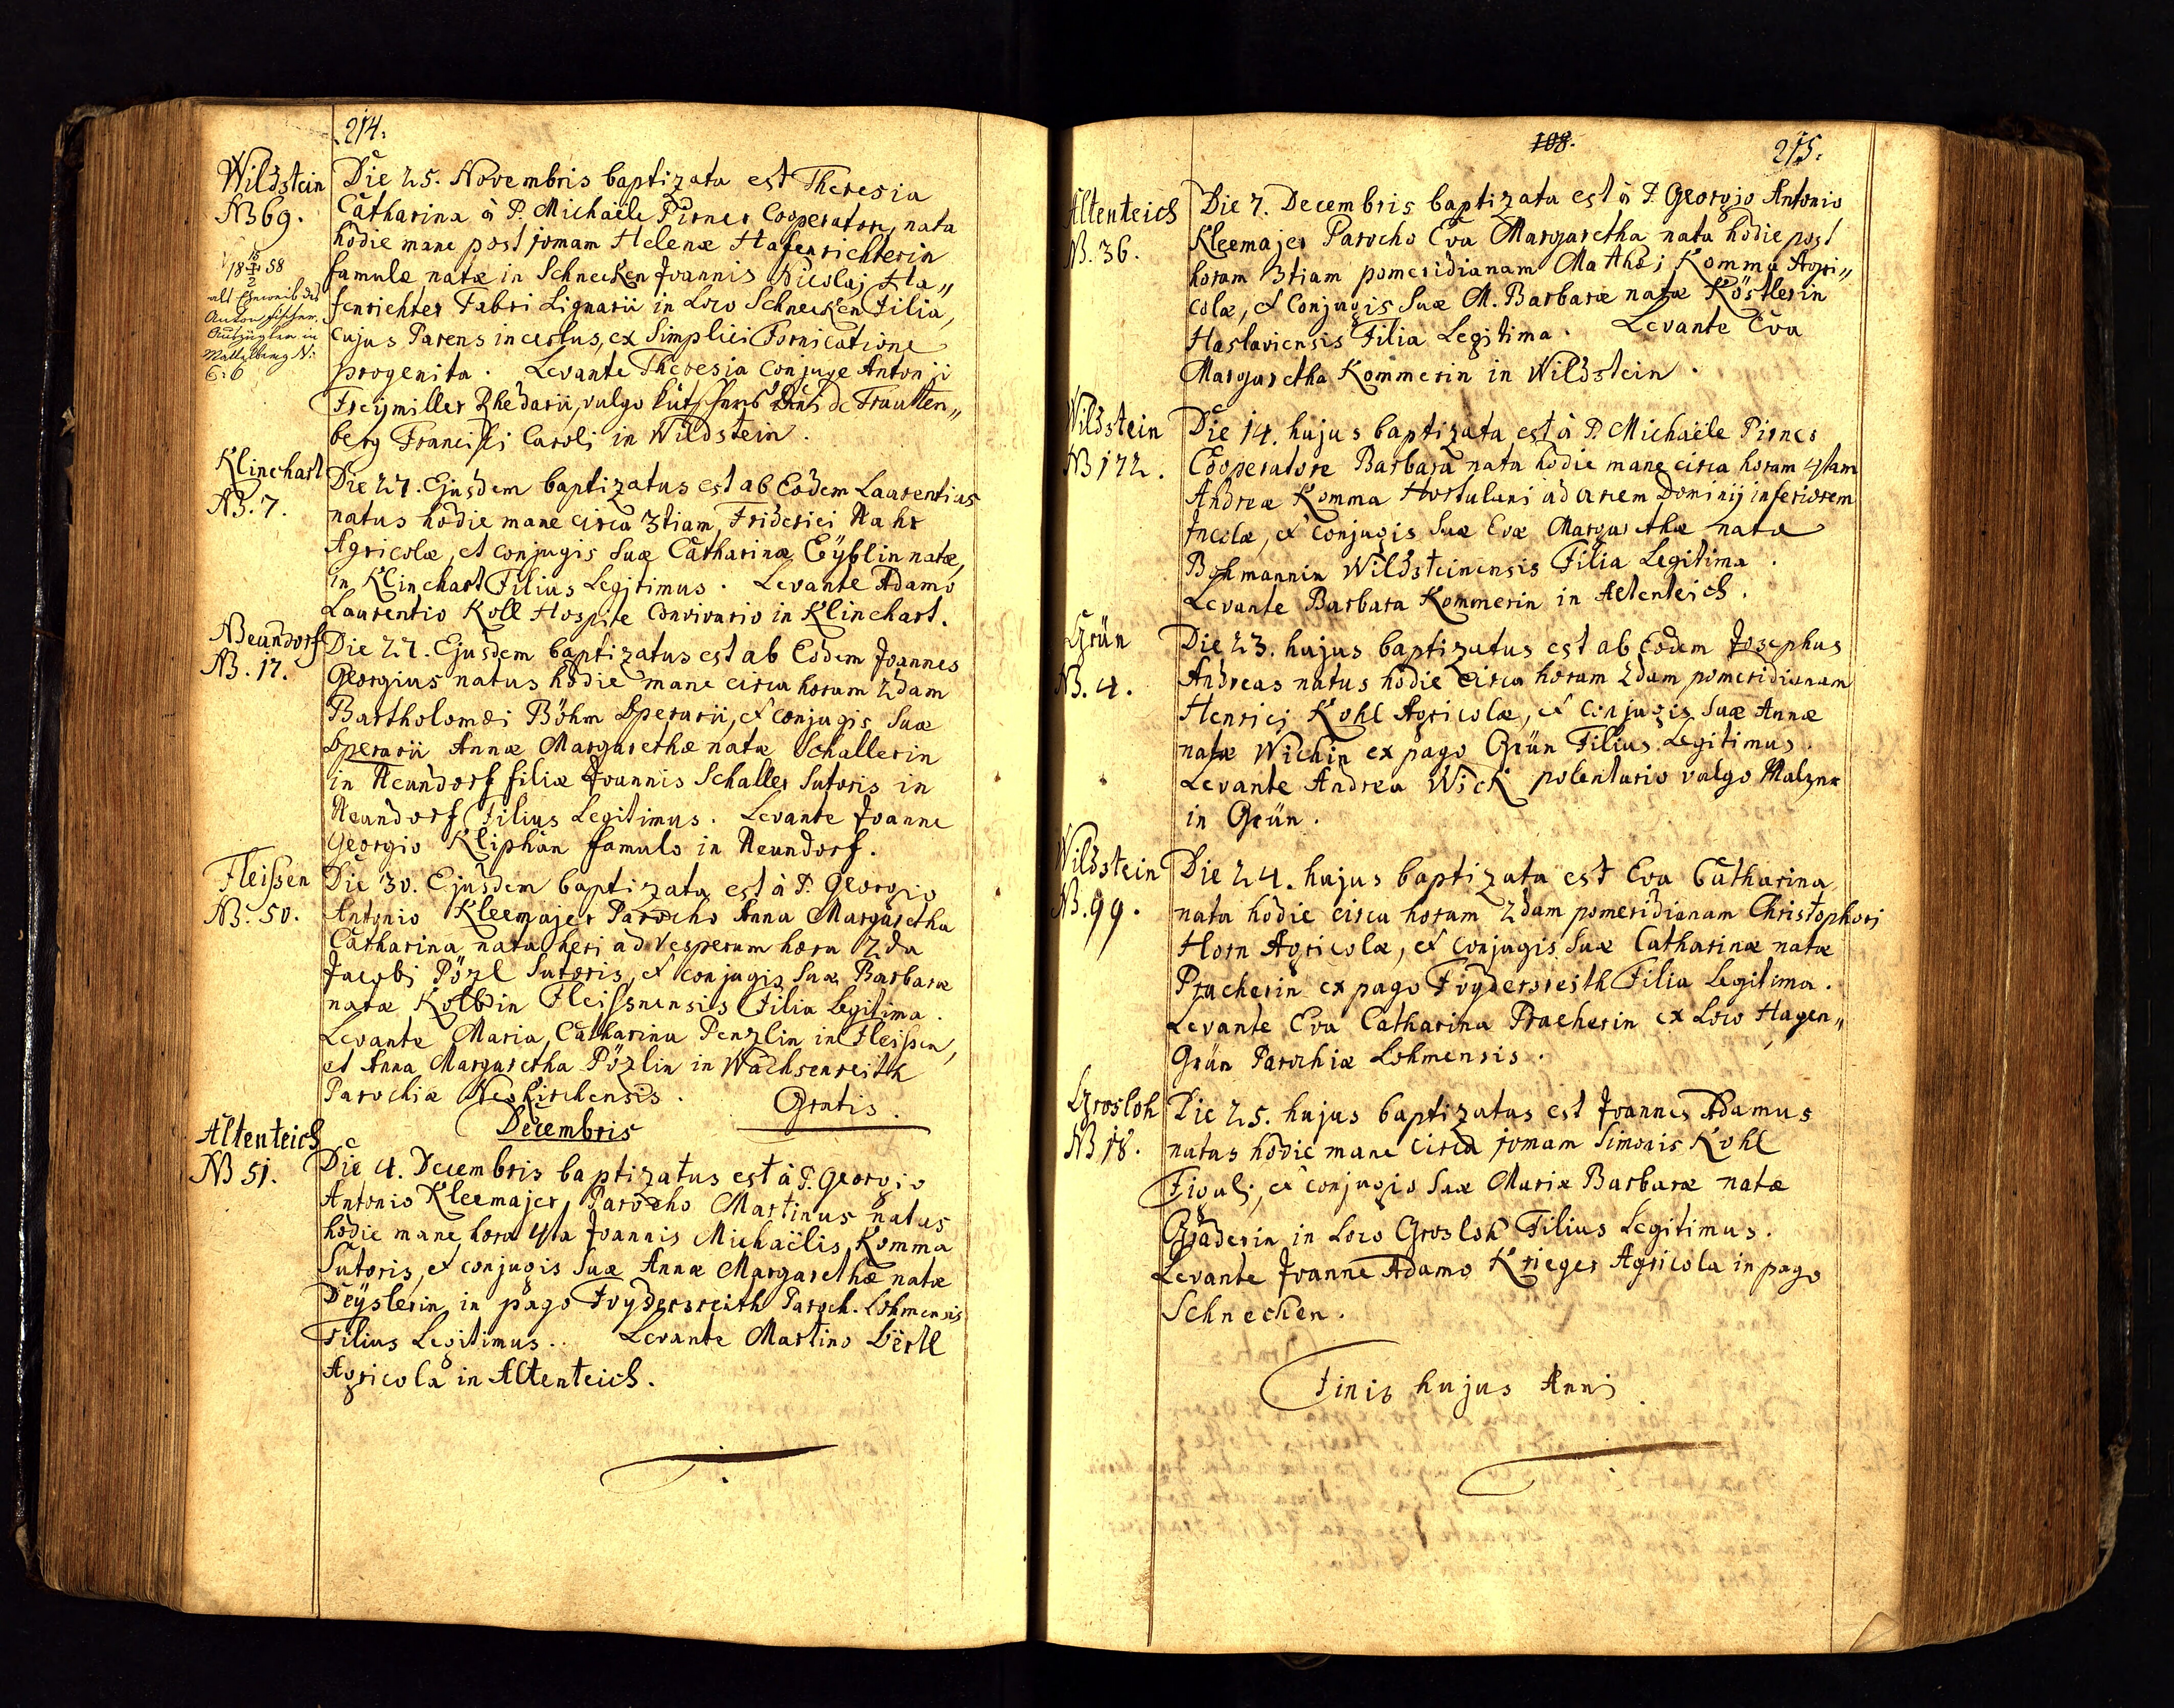 214.
Wildstein
NB 69.
18 58
als Eheweib des
Anton Fischer
Auszügler in
N:
C: 6
Die 25. Novembris baptizata est Theresia
Catharina à P. Michaële Pirner Cooperatore, nata
hodie mane post 10mam Helenæ Hafenrichterin
famulæ natæ in Schnecken Joannis Nicolaj Ha„
fenrichter Fabri Lignarii in Loco Schnecken Filia,
cujus Parens incertus, ex Simplici Fornicatione
progenita. Levante Theresia Conjuge Antonii
Freymiller Rhedarii, vulgo Kutschers de Trautten„
berg Francisci Caroli in Wildstein.
Klinchart
NB. 7.
Die 27. Ejusdem baptizatus est ab Eodem Laurentius
natus hodie mane circa 3tiam, Friderici Nahr
Agricolæ, et conjugis suæ Catharinæ Eyblin natæ,
in Klinchart Filius Legitimus. Levante Adamo
Laurentio Koll Hospite Convivario in Klinchart.
Neundorf
NB. 17.
Die 27. Ejusdem baptizatus est ab Eodem Joannes
Georgius natus hodie mane circa horam 2dam
Bartholomæi Böhm Operarii, et conjugis suæ
Operarii Annæ Margarethæ natæ Schallerin
in Neundorf filiæ Joannis Schaller Sutoris in
Neundorf Filius Legitimus. Levante Joanne
Georgio Kliphan famulo in Neundorf.
Fleissen
NB. 50.
Die 30. Ejusdem baptizata est à P. Georgio
Antonio Kleemajer Parocho Anna Margaretha
Catharina nata heri ad Vesperum hora 2da
Jacobi Pözl Sutoris, et conjugis suæ Barbaræ
natæ Kolbin Fleissnensis Filia Legitima.
Levante Maria Catharina Penzlin in Fleissen,
et Anna Margaretha Pözlin in Wachsenreith
Parochiæ Neokirchensis. Gratis.
Decembris
Altenteich
NB 51.
Die 4. Decembris baptizatus est à P. Georgio
Antonio Kleemajer Parocho Martinus natus
hodie mane hora 4ta Joannis Michaëlis Komma
Sutoris, et conjugis suæ Annæ Margarethæ natæ
Deysterin in pago Voydersreith Paroch. Lohmensis
Filius Legitimus. Levante Martino Lörtl
Agricola in Altenteich.
108.
215.
Altenteich
N. 36.
Die 7. Decembris baptizata est à P. Georgio Antonio
Kleemajer Parocho Eva Margaretha nata hodie post
horam 3tiam pomeridianam Mathæi Komma Agri„
colæ, et Conjugis suæ M. Barbaræ natæ Köstlerin
Haslaviensis Filia Legitima. Levante Eva
Margaretha Kommerin in Wildstein.
Wildstein
NB 172.
Die 14. hujus baptizata est à P. Michaële Pirner
Cooperatore Barbara nata hodie mane circa horam 4tam
Andreæ Komma Hortulani ad arcem Dominij inferiorem
Incolæ, et conjugis suæ Evæ Margarethæ nata
Bohmannin Wildsteinensis Filia Legitima.
Levante Barbara Kommerin in Altenteich.
Grün
NB. 4.
Die 23. hujus baptizatus est ab eodem Josephus
Andreas natus hodie circa horam 2dam pomeridianam
Henrici Kohl Agricolæ, et conjugis suæ Annæ
natæ Wichin ex pago Grün Filius Legitimus.
Levante Andrea Wick polentario vulgo Malzner
in Grün.
Wildstein
NB. 99.
Die 24. hujus baptizata est Eva Catharina
nata hodie circa horam 2dam pomeridianam Christophori
Horn Agricolæ, et conjugis suæ Catharinæ natæ
Pracherin ex pago Voydersreith Filia Legitima.
Levante Eva Catharina Pracherin ex Loco Hagen„
Grün Parochiæ Lohmensis.
Grosloh
NB 18.
Die 25. hujus baptizatus est Joannes Adamus
natus hodie mane circa 10mam Simonis Kohl
Figuli, et conjugis suæ Mariæ Barbaræ natæ
Gräderin in Loco Grosloh Filius Legitimus.
Levante Joanne Adamo Krieger Agricola in pago
Schnecken.
Finis hujus Anni